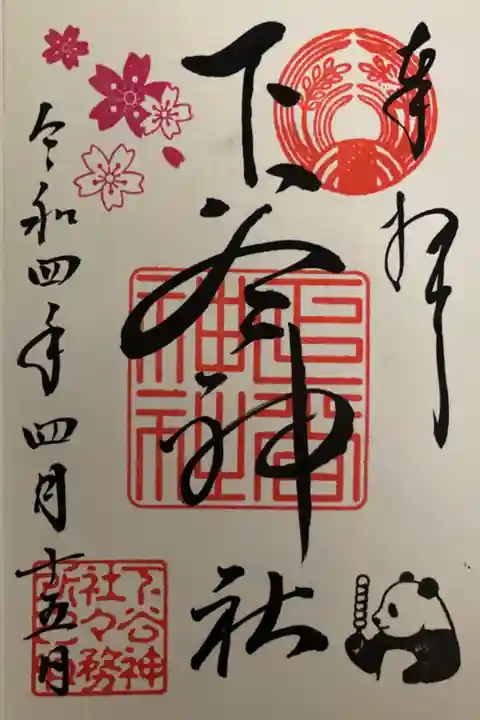 奉拝
下谷神社
令和四年四月十五日
下谷
神社
下谷神
社々務
所之印